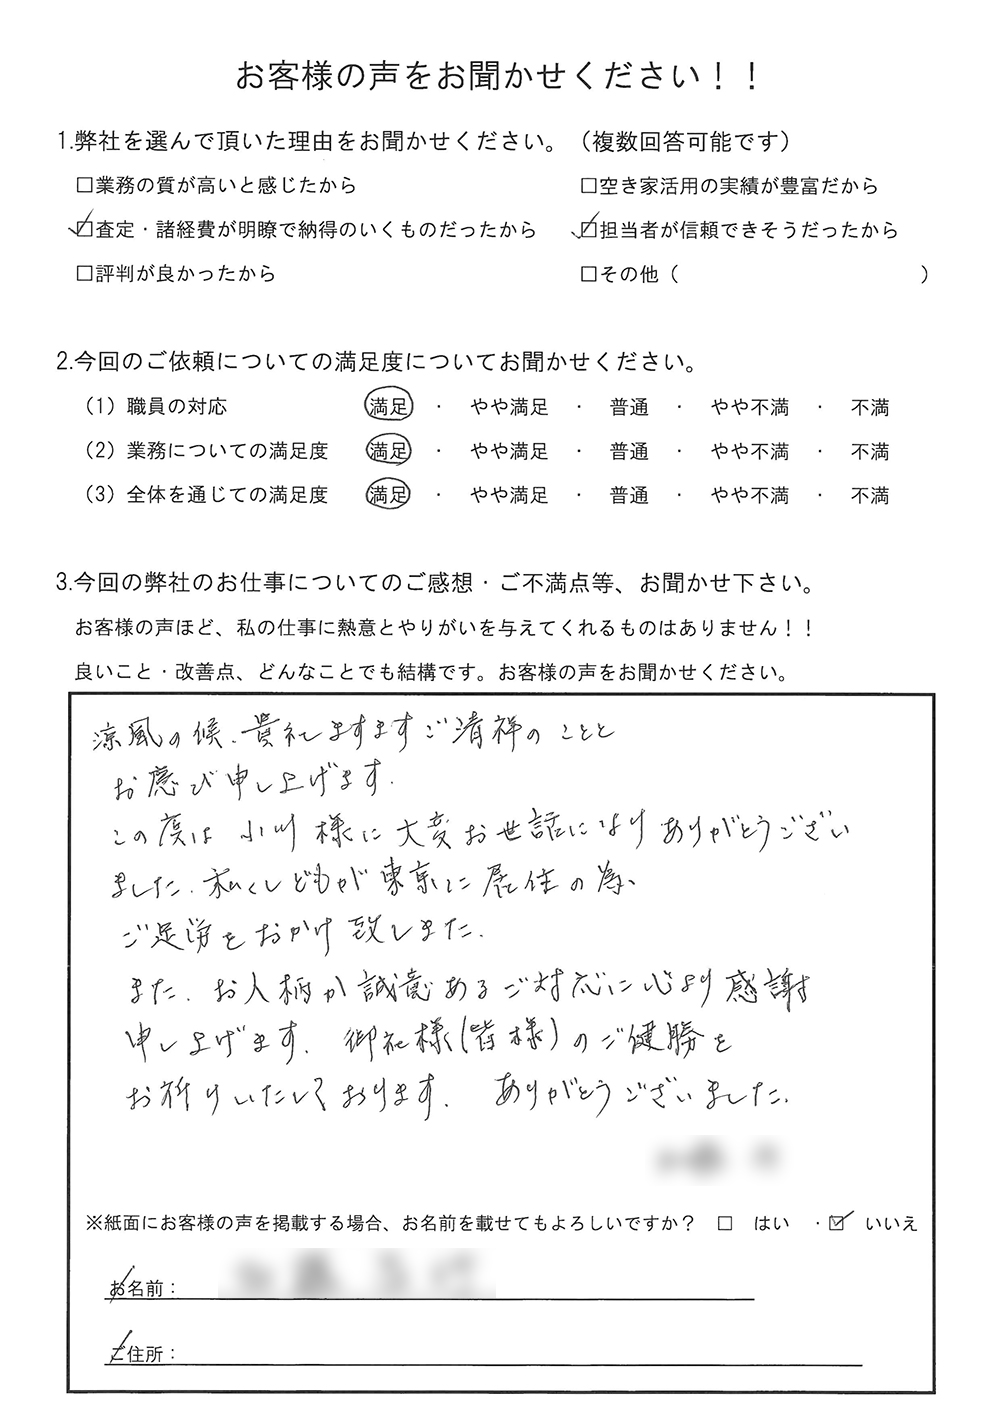 お客様の声をお聞かせください！！
1.弊社を選んで頂いた理由をお聞かせください。（複数回答可能です）
□業務の質が高いと感じたから □空き家活用の実績が豊富だから
☑査定・諸経費が明瞭で納得のいくものだったから ☑担当者が信頼できそうだったから
□評判が良かったから □その他（ ）
2.今回のご依頼についての満足度についてお聞かせください。
（1）職員の対応 満足 ・ やや満足 ・ 普通 ・ やや不満 ・ 不満
（2）業務についての満足度 満足 ・ やや満足 ・ 普通 ・ やや不満 ・ 不満
（3）全体を通じての満足度 満足 ・ やや満足 ・ 普通 ・ やや不満 ・ 不満
3.今回の弊社のお仕事についてのご感想・ご不満点等、お聞かせ下さい。
お客様の声ほど、私の仕事に熱意とやりがいを与えてくれるものはありません！！
良いこと・改善点、どんなことでも結構です。お客様の声をお聞かせください。
涼風の候、貴社ますますご清祥のことと
お慶び申し上げます。
この度は小川様に大変お世話になりありがとうござい
ました。私くしどもが東京に居住の為、
ご足労をおかけ致しました。
また、お人柄か誠意あるご対応に心より感謝
申し上げます。御社様(皆様)のご健勝を
お祈りいたしております。ありがとうございました。
※紙面にお客様の声を掲載する場合、お名前を載せてもよろしいですか？ □ はい ・☑ いいえ
お名前：
ご住所：